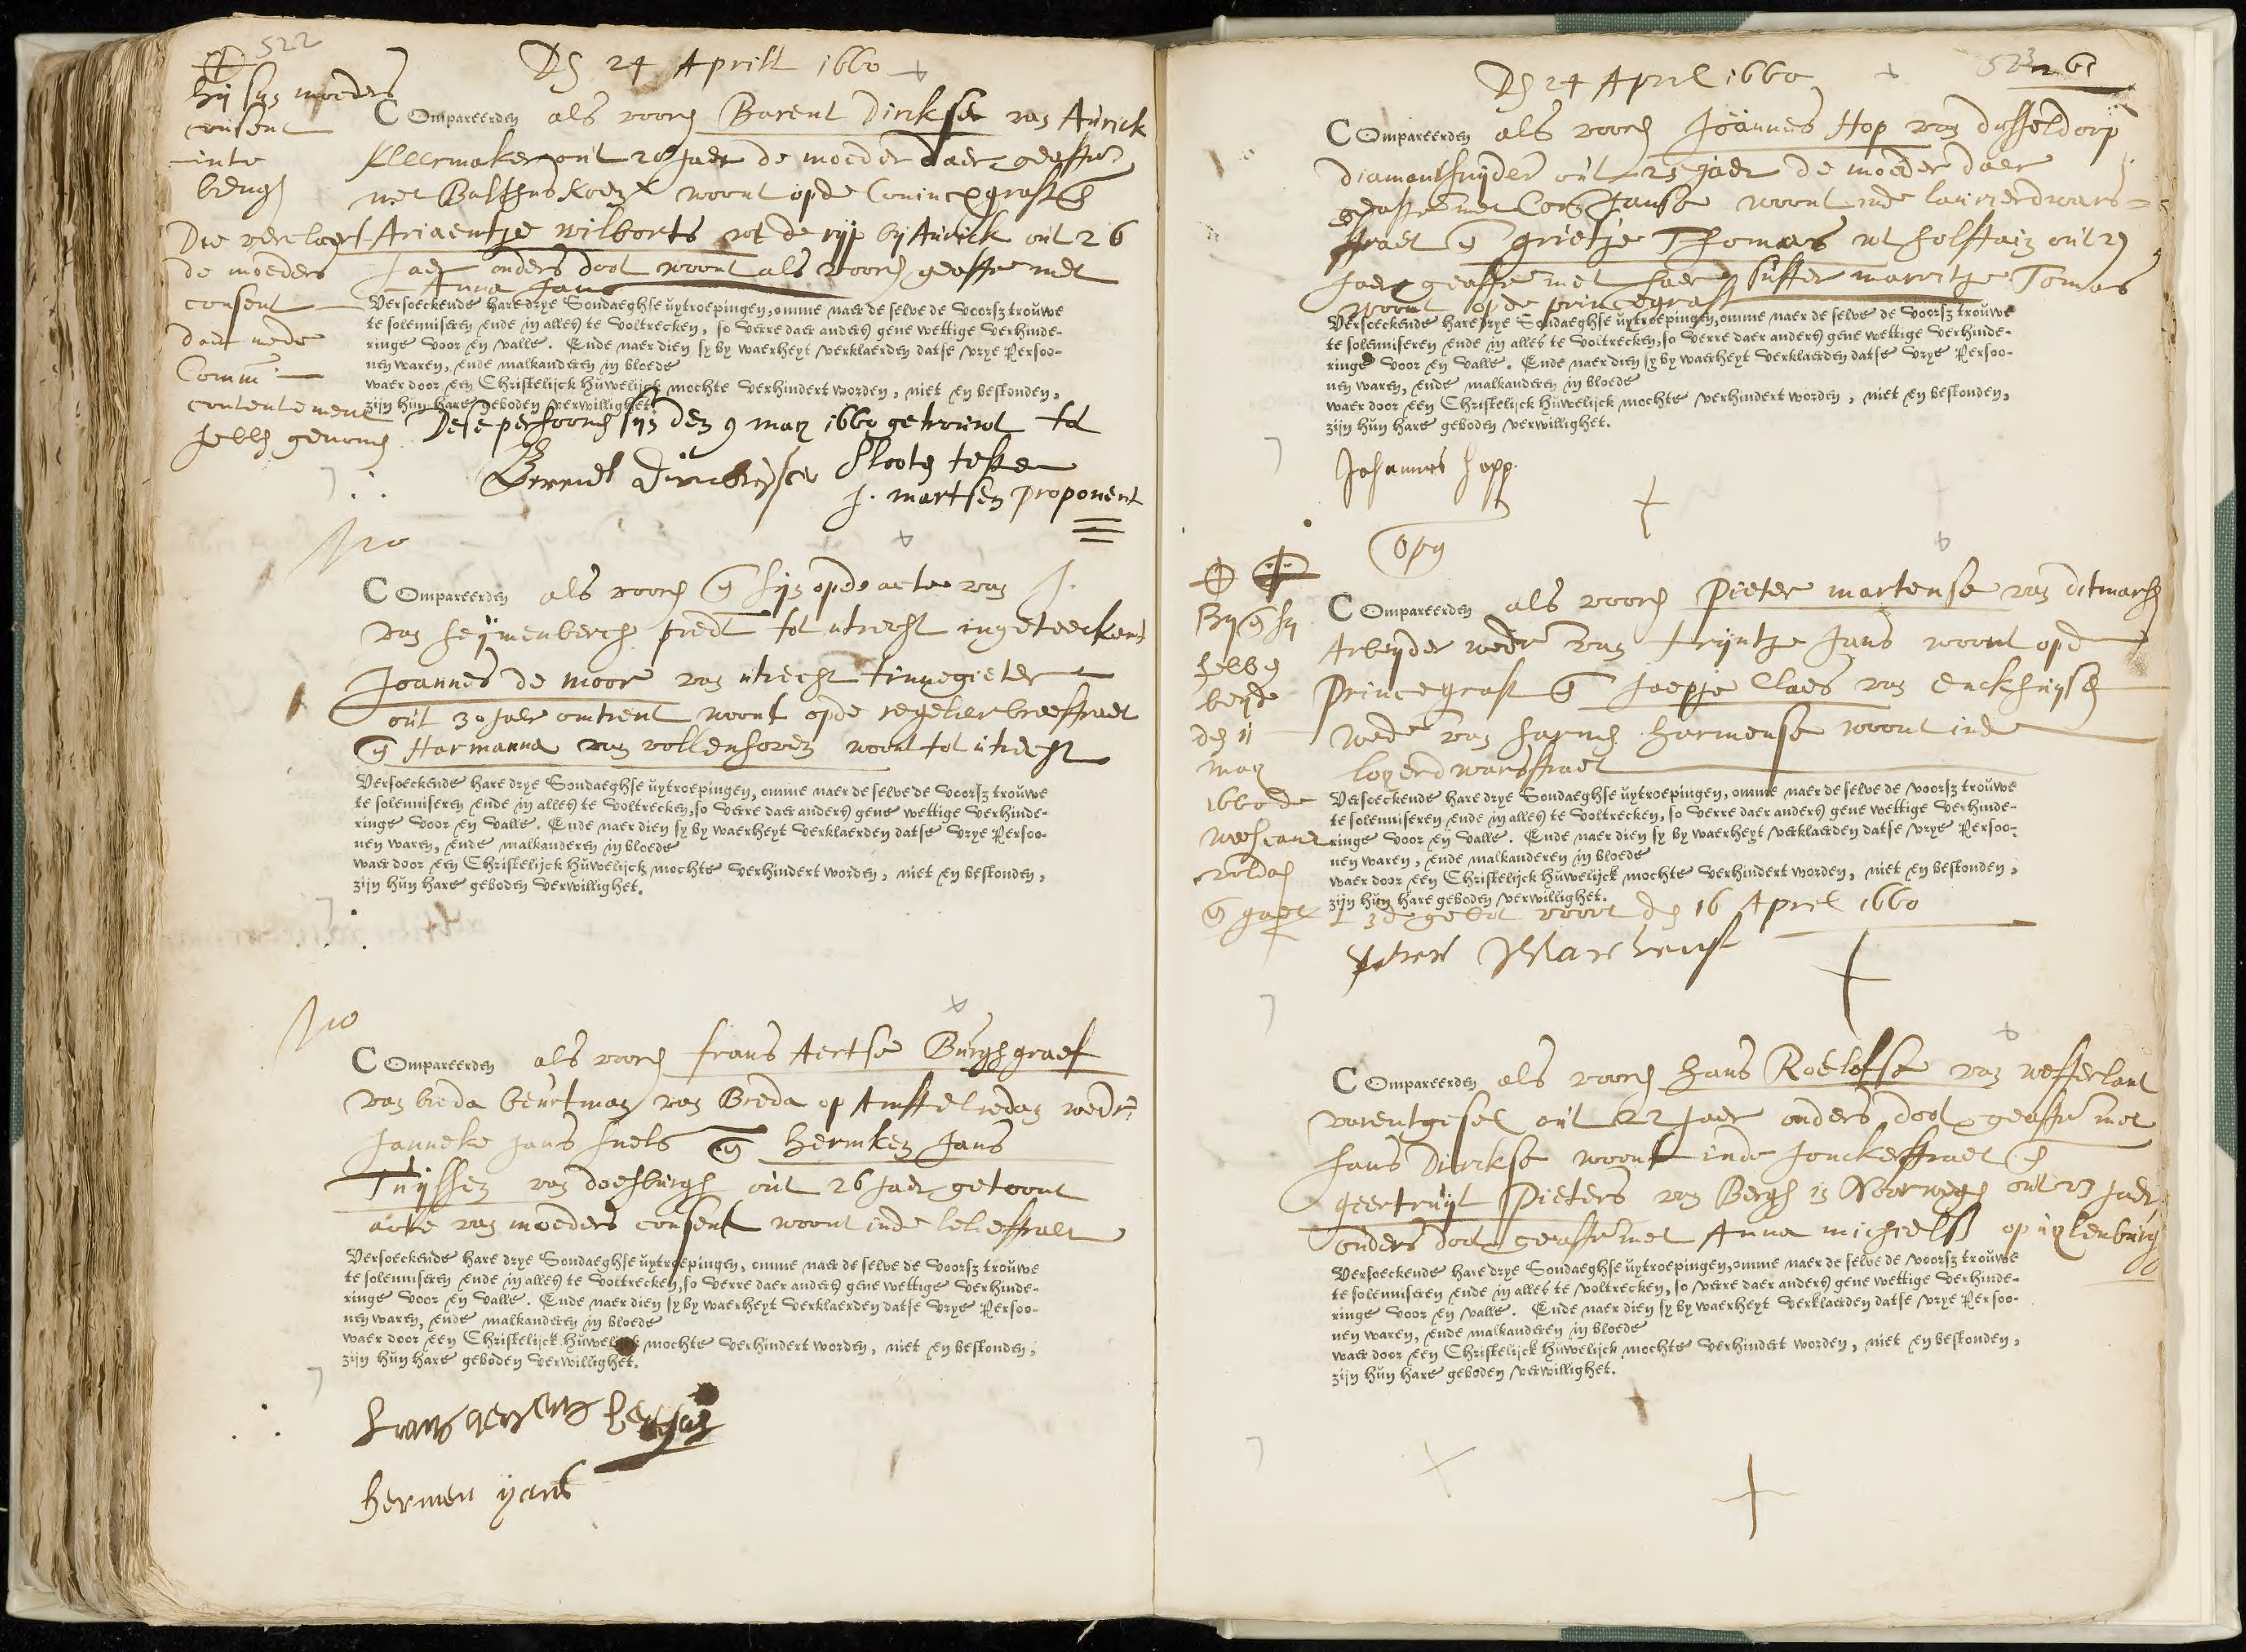 522
Ds 24 Aprill 1660
hij sijn moeders
consent
inte
brengs
COmpareerden als voors Barent Dirckse van Aurick
kleermaker out 28 Jaer de moeder daer geasst
met Balthus woont opde Conincxgraft en
Ariaentje Wilborts wt de rijp bij Aurick out 26
Jaer ouders doot woont als voors geasst met
Anna Jans
Die vercleert
de moeders
consent
daer mede
Comm
contentement
hebbe genomen
Versoeckende hare drye Sondaeghse uytroepingen, omme naer de selve de voorsz trouwe
te solenniseren ende in alles te voltrecken, so verre daer anders gene wettige verhinde-
ringe voor en valle. Ende naer dien sy by waerheyt verklaerden datse vrye Persoo-
nen waren, ende malkanderen in bloede
waer door een Christelijck Huwelijck mochte verhindert worden, niet en bestonden,
zijn hun hare geboden verwillighet.
Dese persoonen sijn den 9 may 1660 getrouwt tot
Slooten teste
Berendt Dirckssen
J. martsen proponent
Nro
COmpareerden als voors en sijn opde acte van J.
van heijmenberch predt tot utrecht ingeteeckent
Joannes de moor van utrecht tinnegieter
out 30 Jaer omtrent woont opde regelierbreestraet
en Harmanna van vollenhoven woont tot utrecht
Versoeckende hare drye Sondaeghse uytroepingen, omme naer de selve de voorsz trouwe
te solenniseren ende in alles te voltrecken, so verre daer anders gene wettige verhinde-
ringe voor en valle. Ende naer dien sy by waerheyt verklaerden datse vrye Persoo-
nen waren, ende malkanderen in bloede
waer door een Christelijck Huwelijck mochte verhindert worden, niet en bestonden,
zijn hun hare geboden verwillighet.
Nro
COmpareerden als voors frans Aertse Burghgraef
van breda beurtman van Breda op Amstelredam wedr
Janneke Jans Snels en Hermken Jans
Thijssen van doesburgh out 26 Jaer getoont
acte van moeders consent woont inde leliestraet
Versoeckende hare drye Sondaeghse uytroepingen, omme naer de selve de voorsz trouwe
te solenniseren ende in alles te voltrecken, so verre daer anders gene wettige verhinde-
ringe voor en valle. Ende naer dien sy by waerheyt verklaerden datse vrye Persoo-
nen waren, ende malkanderen in bloede
waer door een Christelijck Huwelijck mochte verhindert worden, niet en bestonden,
zijn hun hare geboden verwillighet.
hermen ijans
523
Ds 24 April 1660
COmpareerden als voors Joannes Hop van dusseldorp
diamantsnijder out 25 Jaer de moeder daer
geasst met Janse woont inde laurierdwars-
straet en grietje Thomas wt holstain out 29
Jaer geasst met haer suster marritje Tomas
woont opde princegraft
Versoeckende hare drye Sondaeghse uytroepingen, omme naer de selve de voorsz trouwe
te solenniseren ende in alles te voltrecken, so verre daer anders gene wettige verhinde-
ringe voor en valle. Ende naer dien sy by waerheyt verklaerden datse vrye Persoo-
nen waren, ende malkanderen in bloede
waer door een Christelijck Huwelijck mochte verhindert worden, niet en bestonden,
zijn hun hare geboden verwillighet.
Johannes hopp
opg
Hij en sij
hebben
beijde
den 11
may
1660 de
weescamer
voldaen
COmpareerden als voors Pieter martense van ditmars
Arbeijder wedr van trijntje Jans woont opde
Princegraft en Jaepje Claes van enckhuijsen
wede van harmen harmense woont inde
loyerdwarsstraet
Versoeckende hare drye Sondaeghse uytroepingen, omme naer de selve de voorsz trouwe
te solenniseren ende in alles te voltrecken, so verre daer anders gene wettige verhinde-
ringe voor en valle. Ende naer dien sy by waerheyt verklaerden datse vrye Persoo-
nen waren, ende malkanderen in bloede
waer door een Christelijck Huwelijck mochte verhindert worden, niet en bestonden,
zijn hun hare geboden verwillighet.
en gaet 3de gebot voort den 16 April 1660
Pieter Martens
COmpareerden als voors hans Roelofse van
varentgesel out 22 Jaer ouders doot geasst met
hans Dirckse woont inde Jonckerstraet en
geertruijt Pieters van Bergh in Noorwegen out 23 Jaer
ouders doot geasst met Anna michiels op uylenburg
Versoeckende hare drye Sondaeghse uytroepingen, omme naer de selve de voorsz trouwe
te solenniseren ende in alles te voltrecken, so verre daer anders gene wettige verhinde-
ringe voor en valle. Ende naer dien sy by waerheyt verklaerden datse vrye Persoo-
nen waren, ende malkanderen in bloede
waer door een Christelijck Huwelijck mochte verhindert worden, niet en bestonden,
zijn hun hare geboden verwillighet.